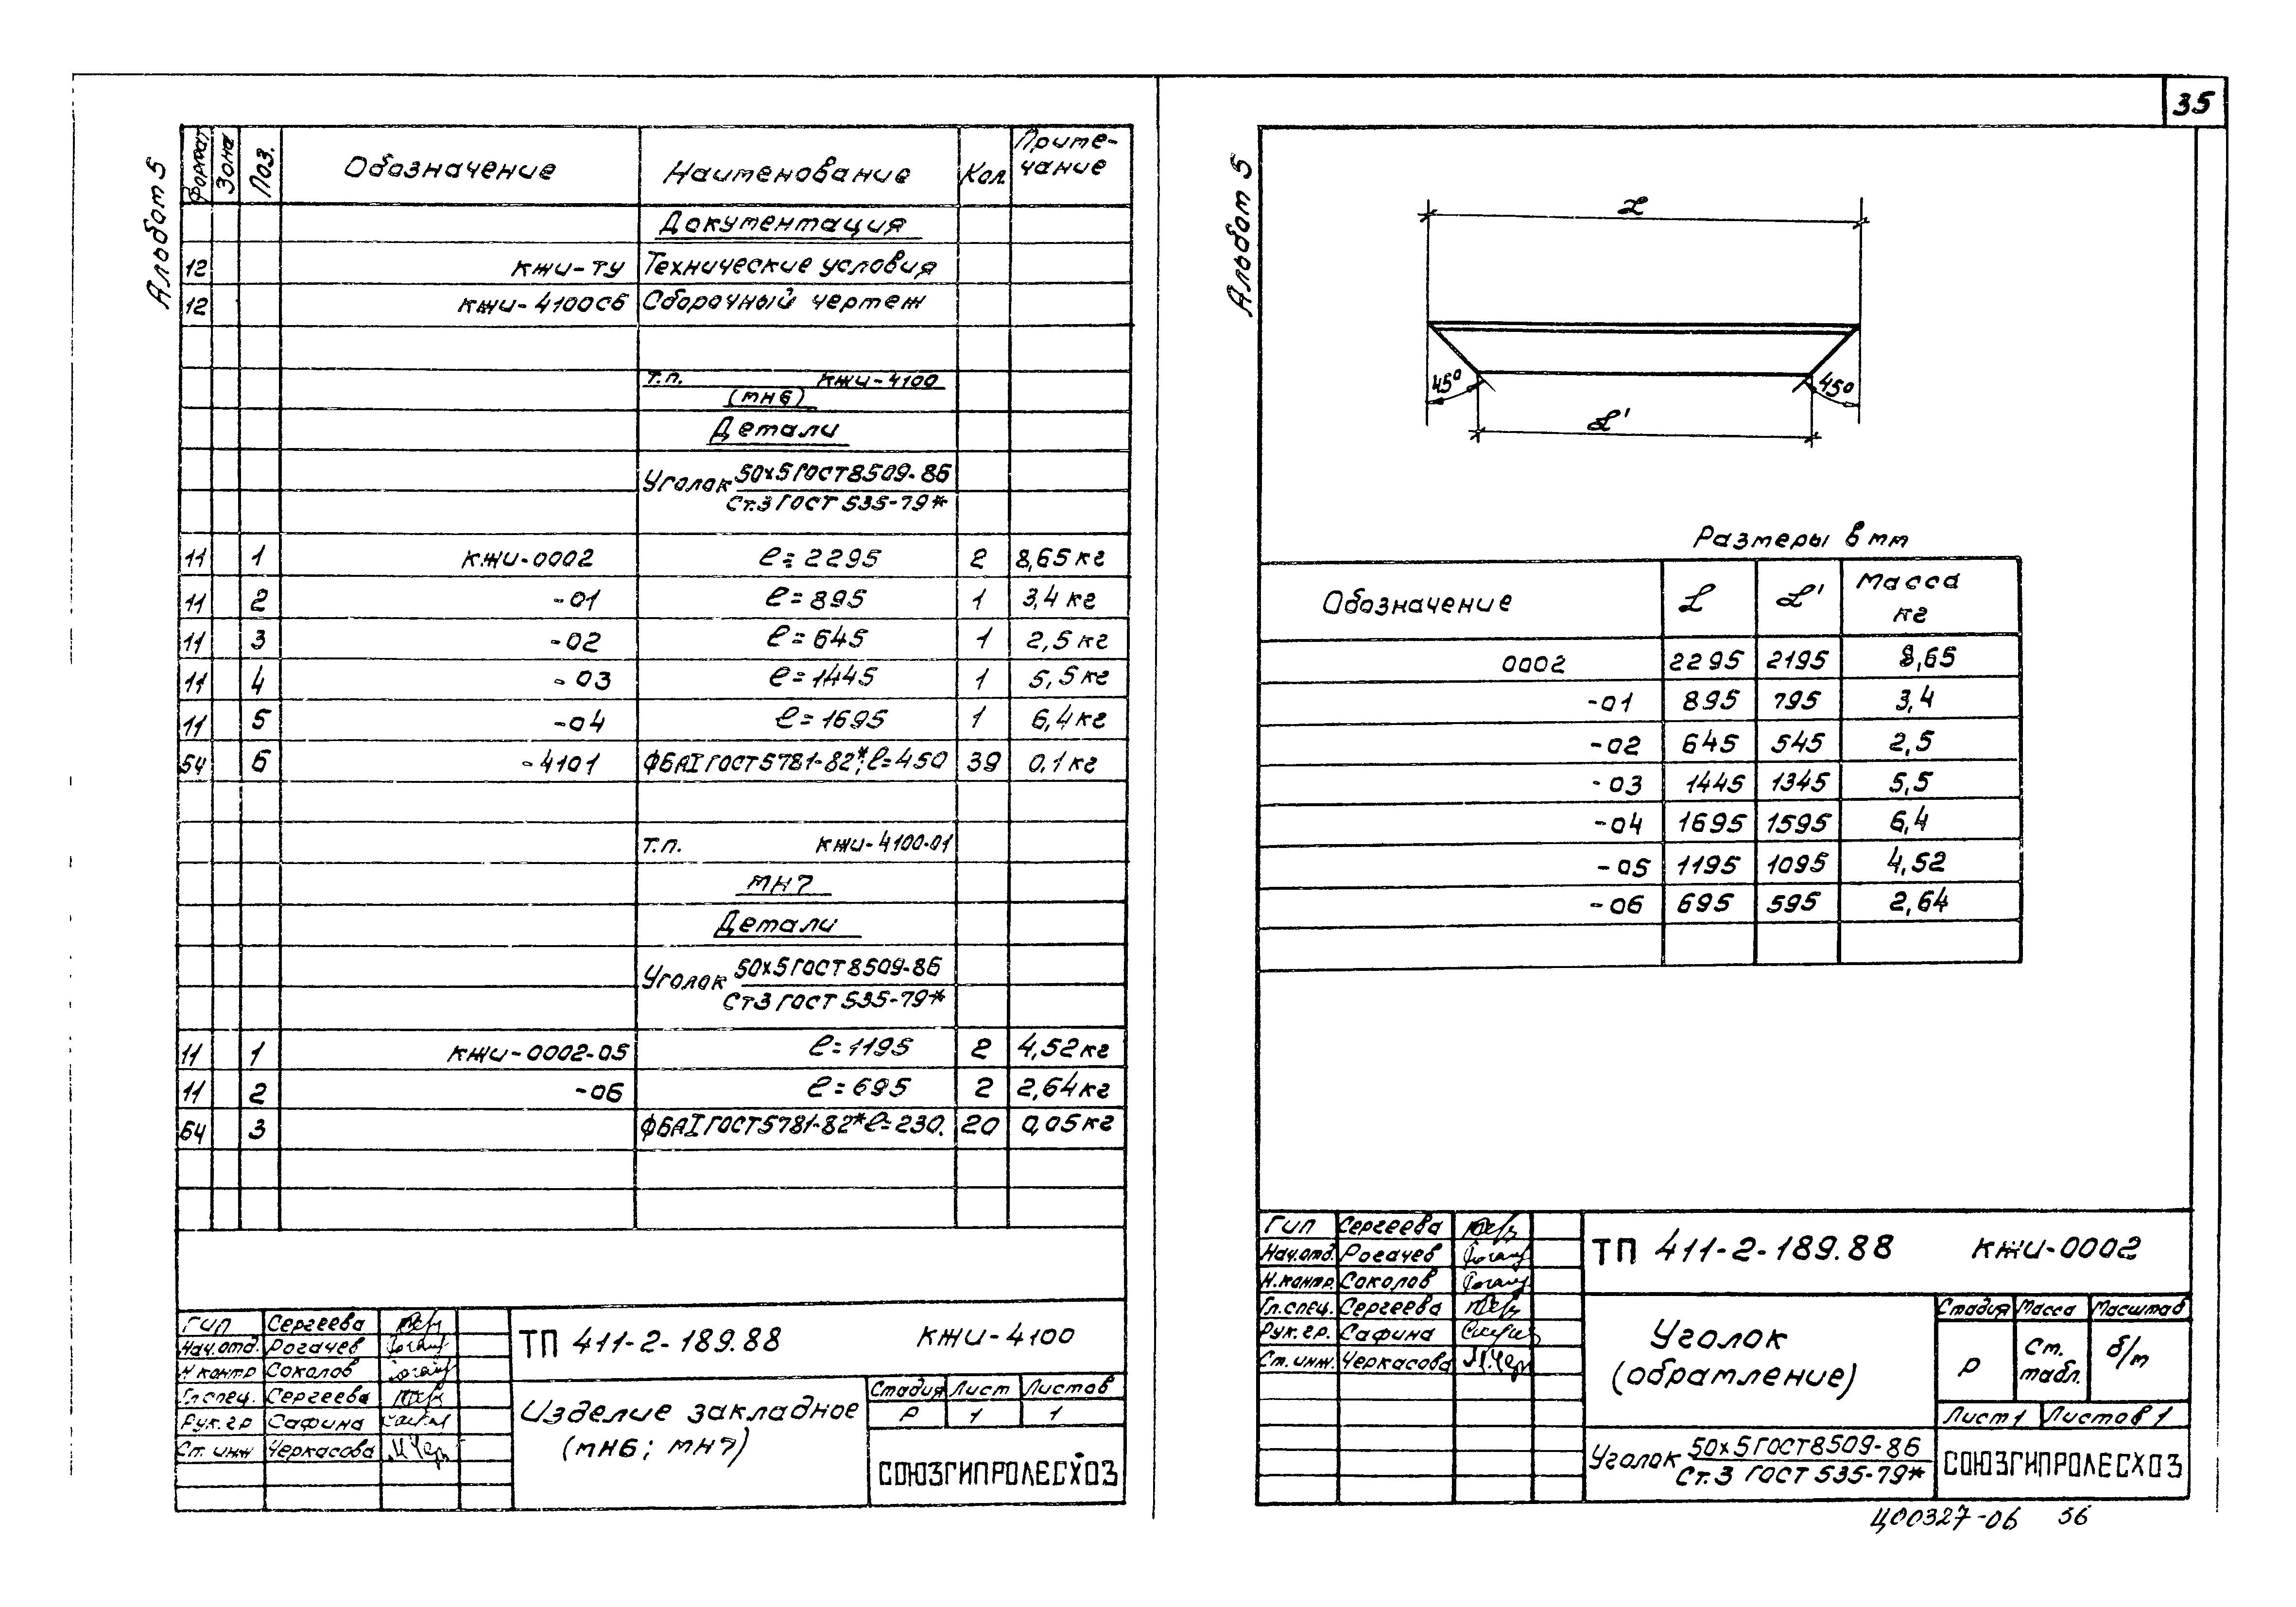 35
Альбом 5
Формат Зона Поз. Обозначение Наименование Кол. Приме-чание
Документация
12 КЖИ-ТУ Технические условия
12 КЖИ-4100СБ Сборочный чертеж
Т.П. КЖИ-4100
(МН6)
Детали
Уголок 50х5 ГОСТ 8509-86
Ст.3 ГОСТ 535-79*
11 1 КЖИ-0002 ℓ=2295 2 8,65кг
11 2 -01 ℓ=895 1 3,4кг
11 3 -02 ℓ=645 1 2,5кг
11 4 -03 ℓ=1445 1 5,5кг
11 5 -04 ℓ=1695 1 6,4кг
54 6 -4101 Ф6АI ГОСТ 5781-82*, ℓ=450 39 0,1кг
Т.П. КЖИ-4100-01
МН7
Детали
Уголок 50х5 ГОСТ 8509-86
Ст3 ГОСТ 535-79*
11 1 КЖИ-0002-05 ℓ=1195 2 4,52кг
11 2 -06 ℓ=695 2 2,64кг
64 3 Ф6АI ГОСТ 5781-82* ℓ=230. 20 0,05кг
ГИП Сергеева
Нач.отд. Рогачев
Н контр Соколов
Гл.спец. Сергеева
Рук.гр Сафина
Ст. инж Черкасова
ТП 411-2-189.88 КЖИ-4100
Изделие закладное
(МН6; МН7)
Стадия Лист Листов
Р 1 1
СОЮЗГИПРОЛЕСХОЗ
Альбом 5
L
45° 45°
L'
Размеры в мм
Обозначение L L' Масса кг
0002 2295 2195 8,65
-01 895 795 3,4
-02 645 545 2,5
-03 1445 1345 5,5
-04 1695 1595 6,4
-05 1195 1095 4,52
-06 695 595 2,64
ГИП Сергеева
Нач.отд. Рогачев
Н.контр. Соколов
Гл.спец. Сергеева
Рук.гр. Сафина
Ст.инж. Черкасова
ТП 411-2-189.88 КЖИ-0002
Уголок
(обрамление)
Стадия Масса Масштаб
Р Ст. табл. б/м
Лист 1 Листов 1
Уголок 50х5 ГОСТ 8509-86
Ст.3 ГОСТ 535-79*
СОЮЗГИПРОЛЕСХОЗ
Ц00327-06 36